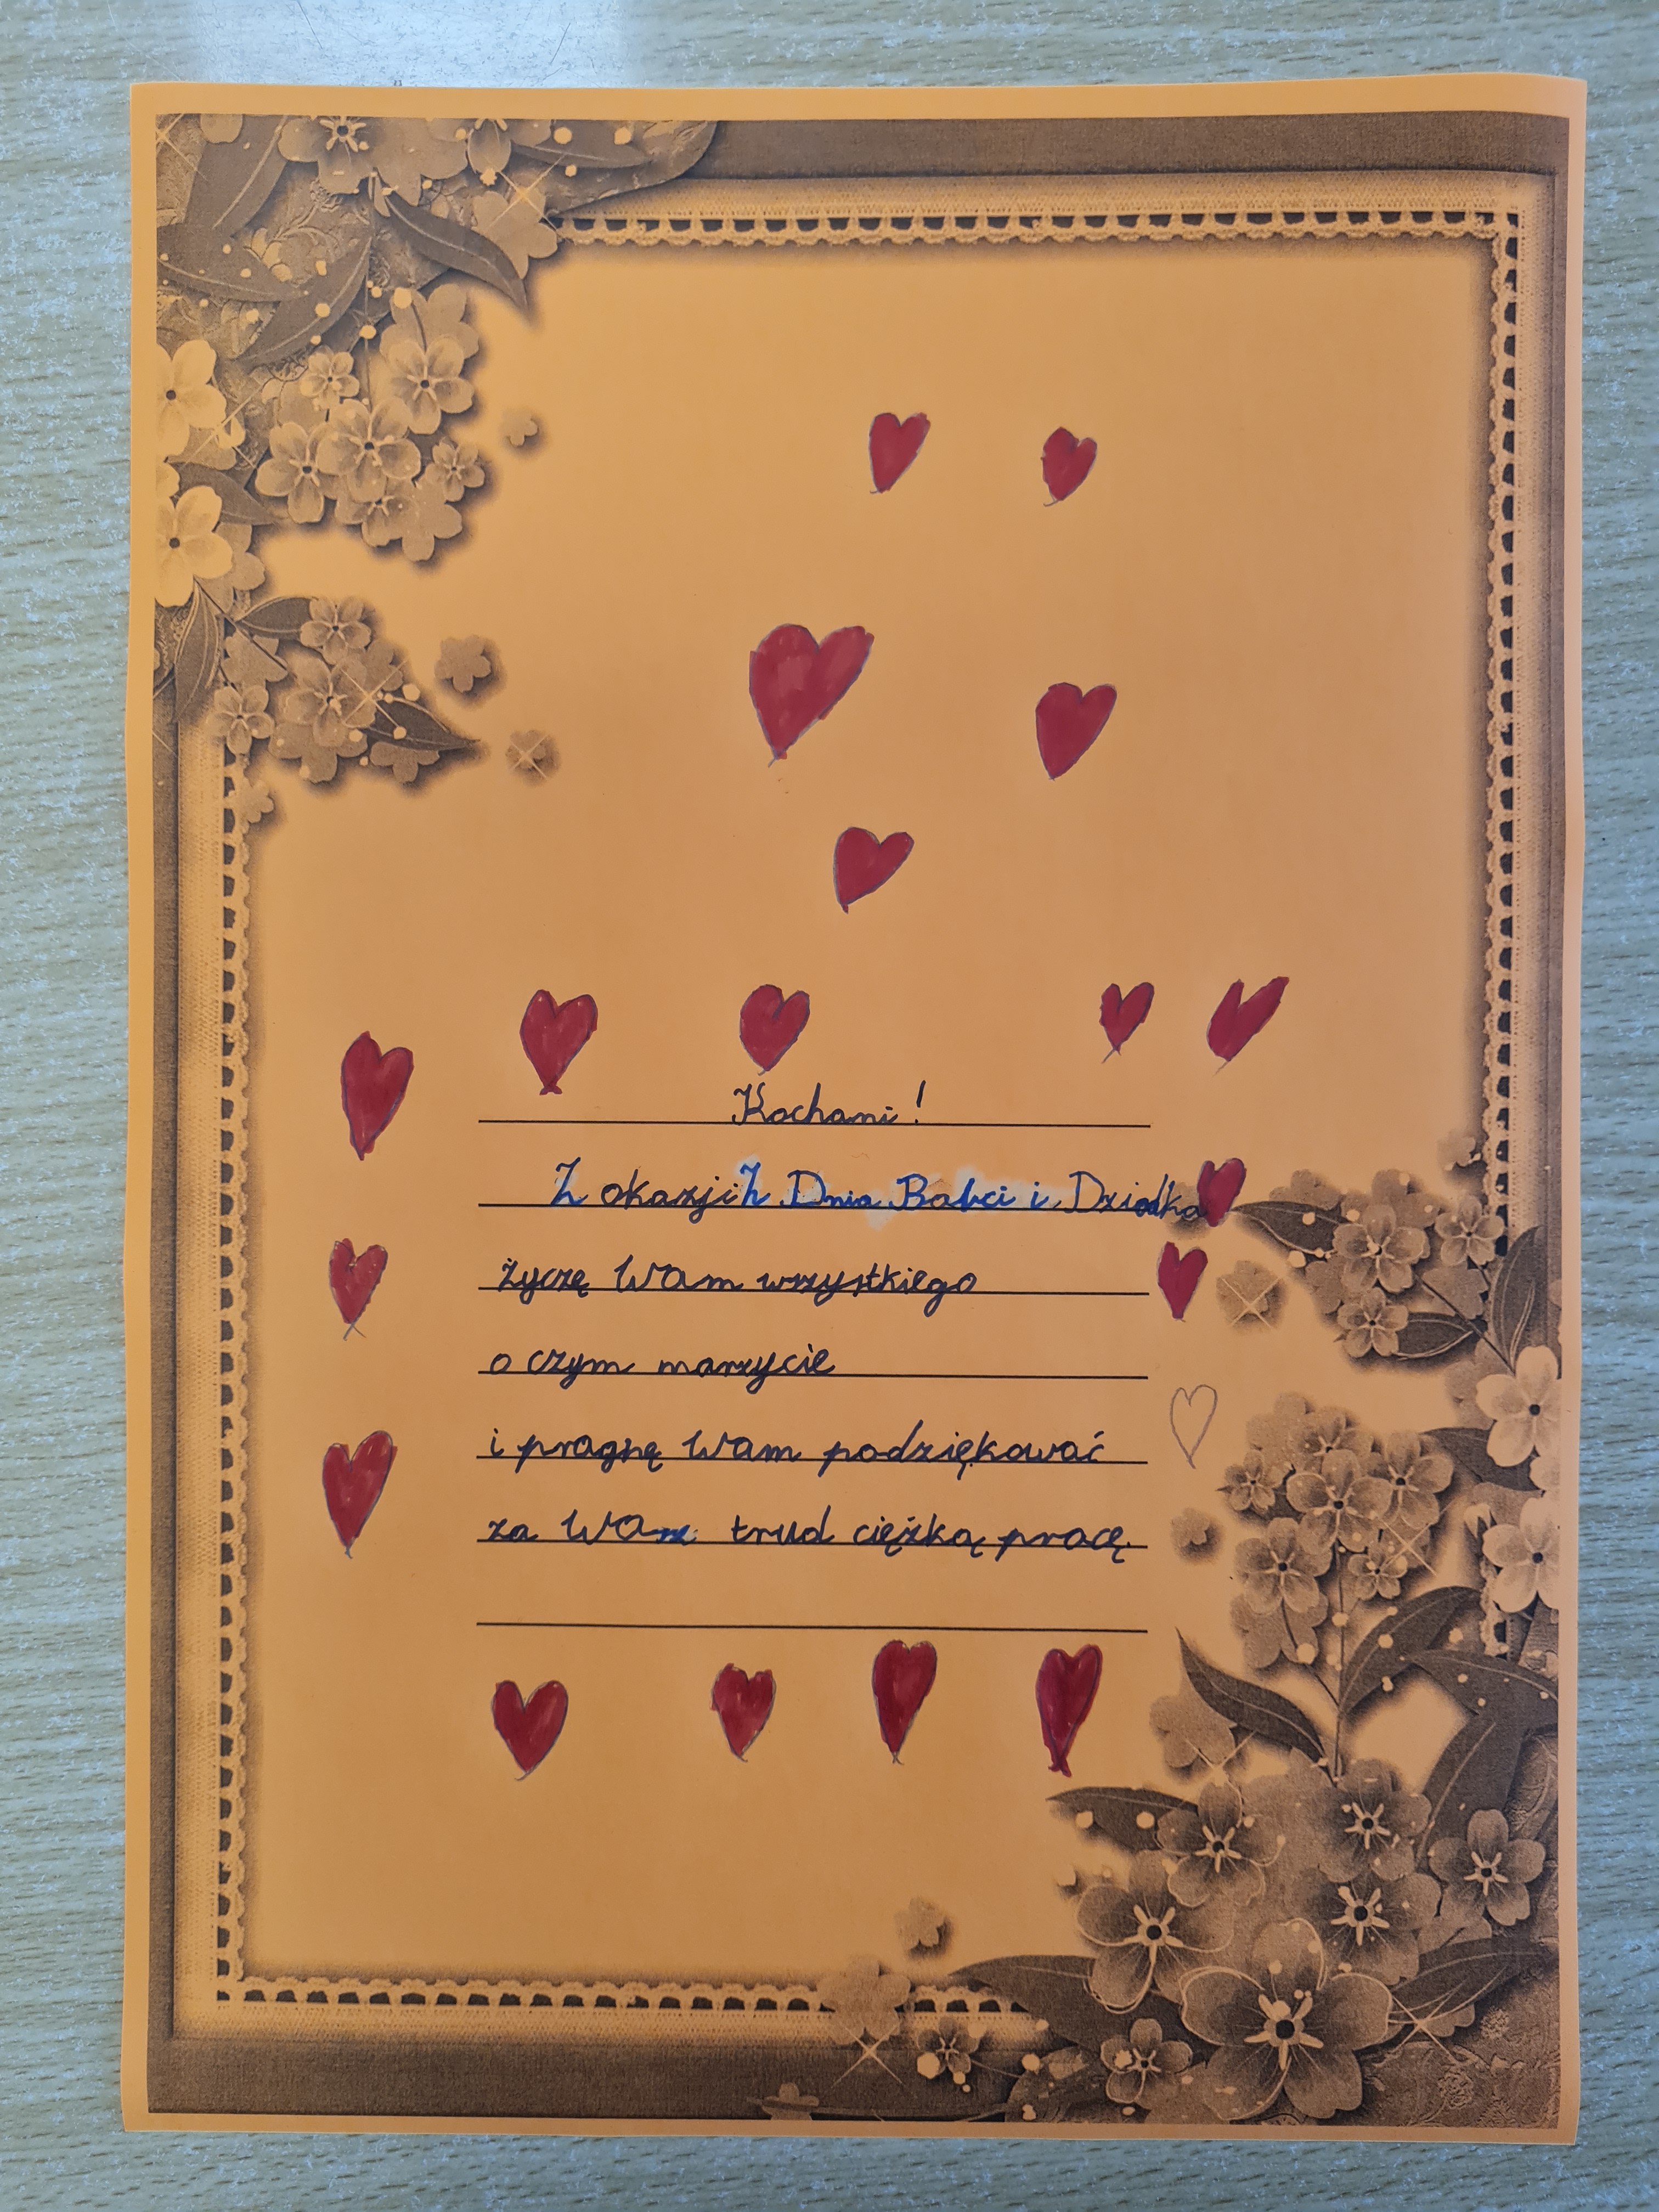 Kochani!
Z okazji Dnia Babci i Dziadka
życzę Wam wszystkiego
o czym marzycie
i pragnę Wam podziękować
za Wam trud ciężką pracę.